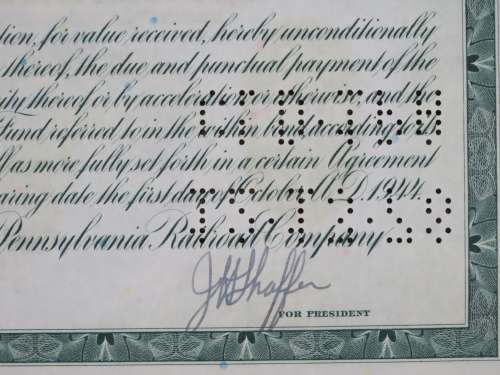 tion, for value received, hereby unconditionally
thereof, the due and punctual payment of the
ity thereof or by acceleration or otherwise, and the
Fund referred to in the within bond according to its
l as more fully set forth in a certain Agreement
aring date the first day of October A.D. 1944.
Pennsylvania Railroad Company.
JHShaffer
FOR PRESIDENT